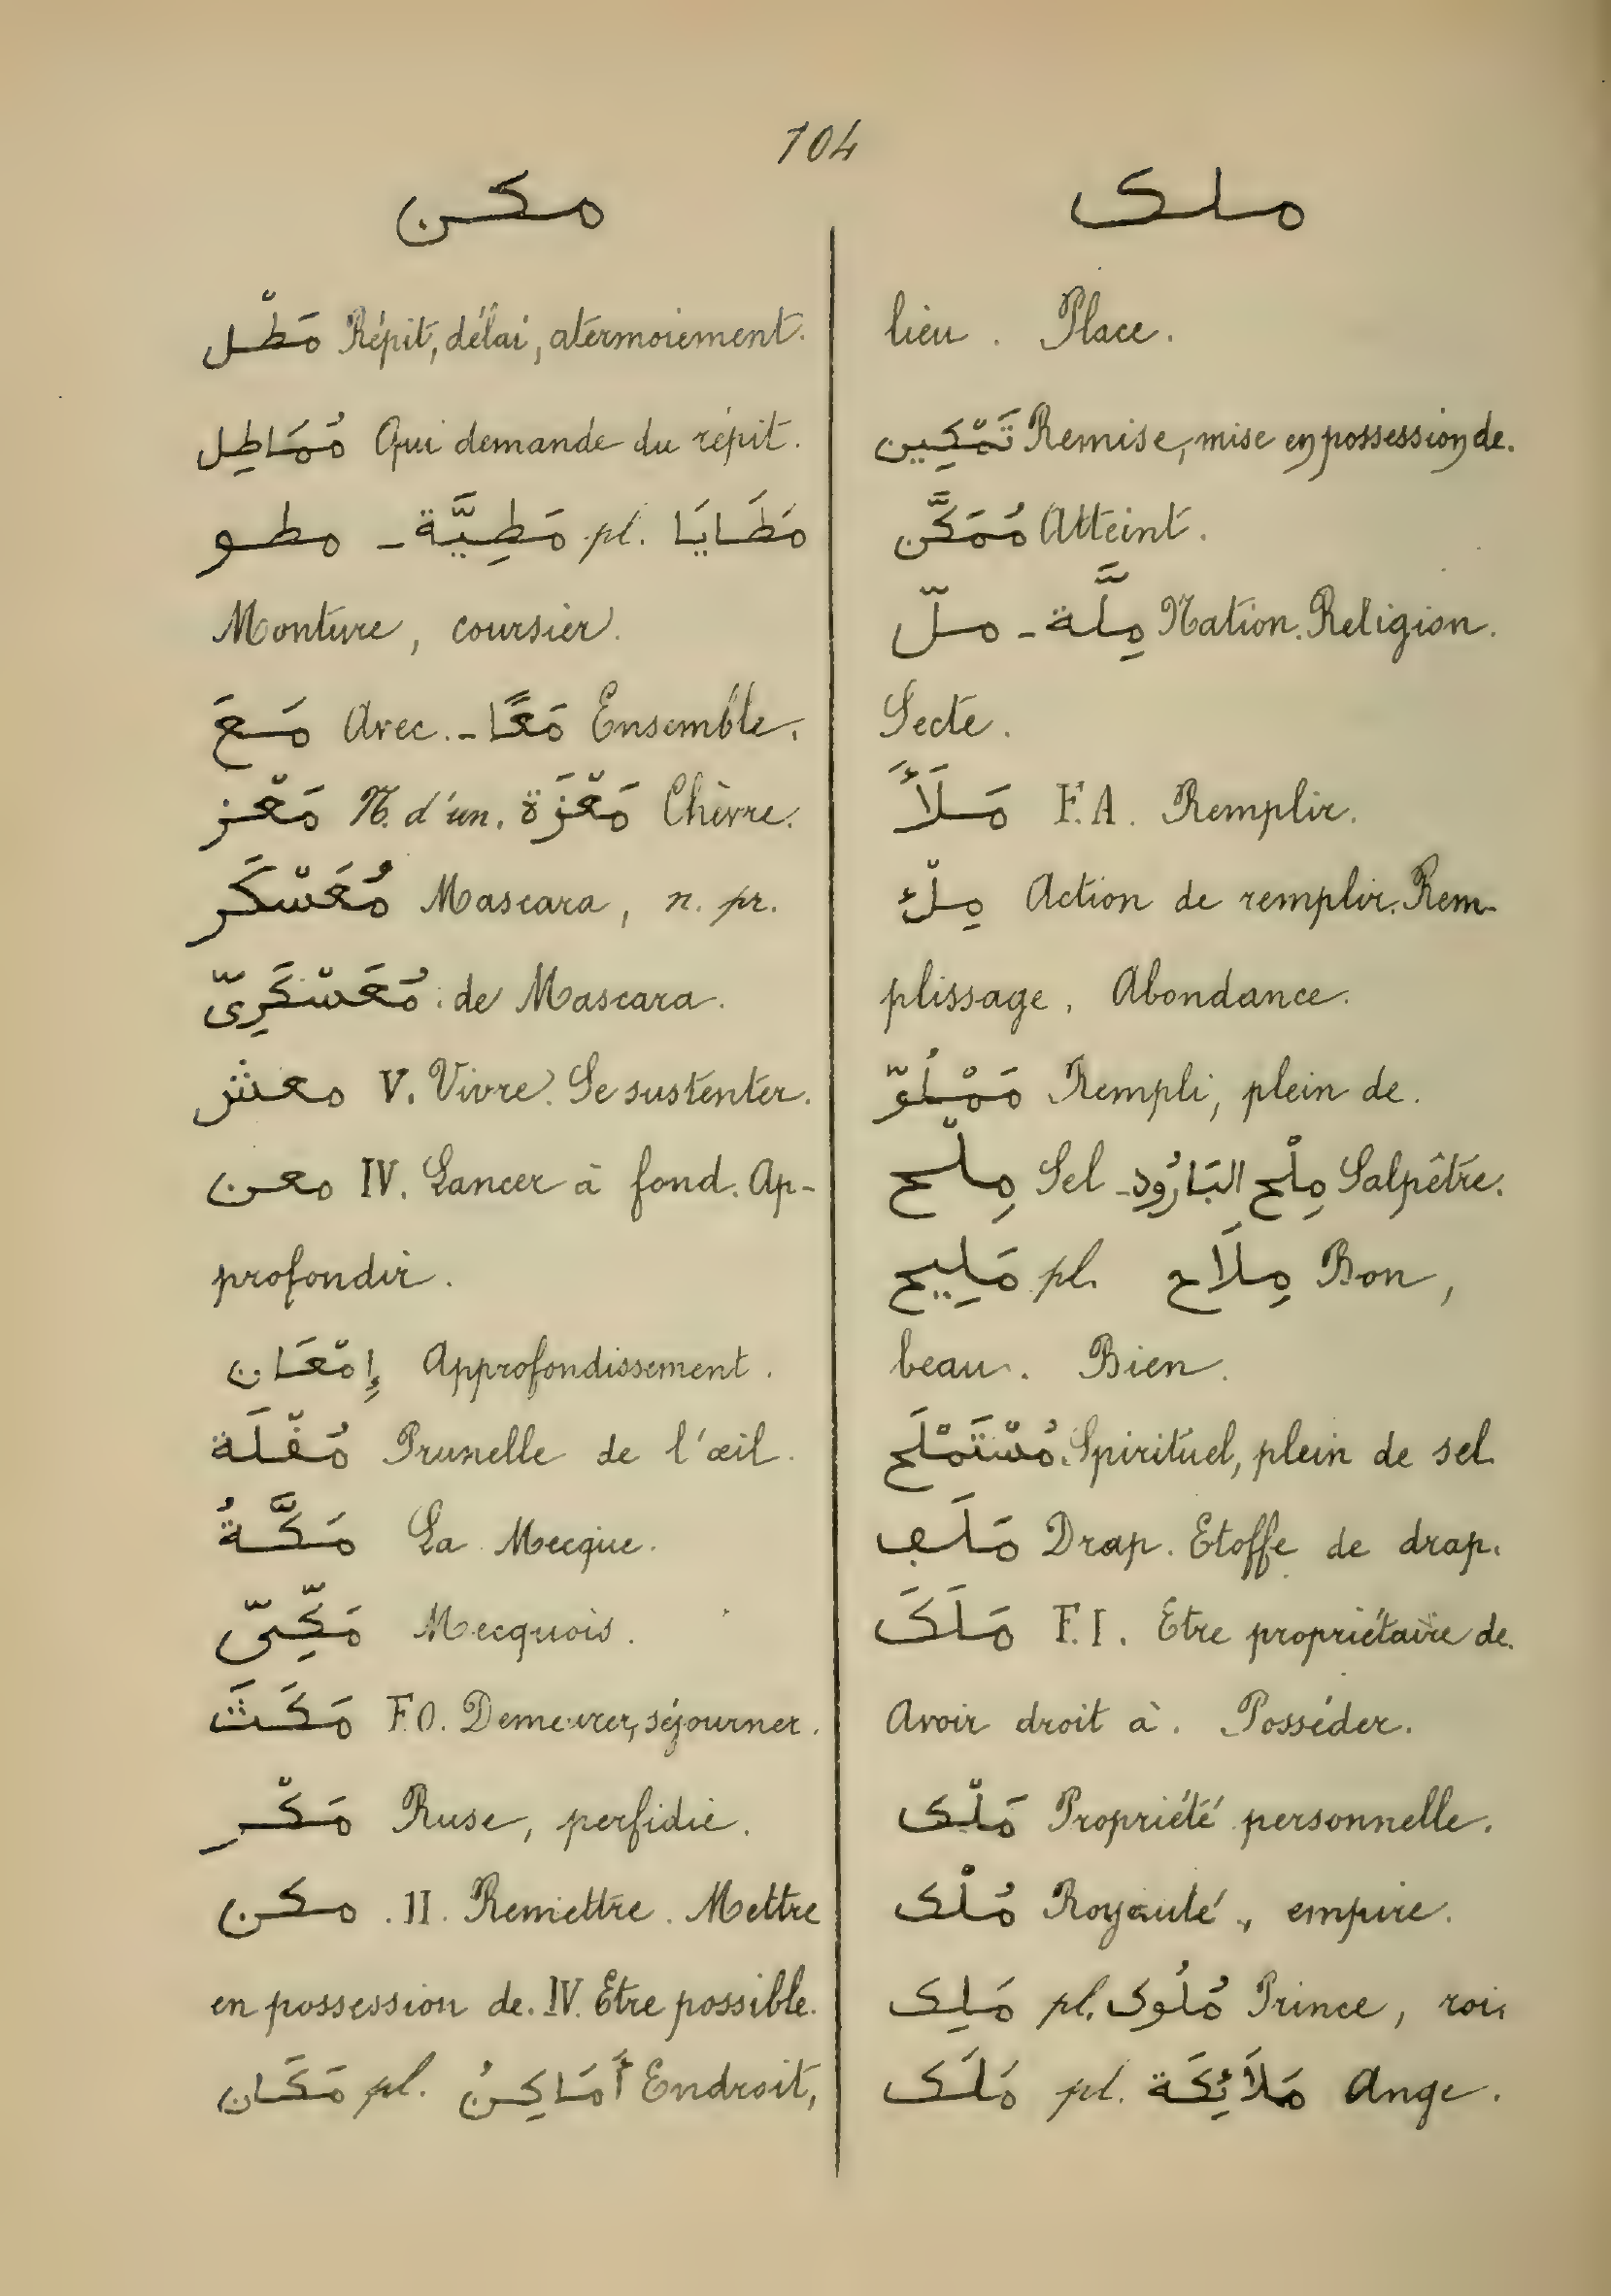 104
مكن
مَطْل Répit, délai, atermoiement.
مُمَاطِل Qui demande du répit.
مطو ـ مَطِيَّة pl. مَطَايَا
Monture, coursier.
مَعَ Avec. ـ مَعًا Ensemble.
مَعْز N. d'un. مَعْزَة Chèvre.
مُعَسْكَر Mascara, n. pr.
مُعَسْكَرِىّ : de Mascara.
معش V. Vivre. Se sustenter.
معن IV. Lancer à fond. Ap-
profondir.
إِمْعَان Approfondissement.
مُڧْلَة Prunelle de l'œil.
مَكَّةُ La Mecque.
مَكِّىّ Mecquois.
مَكَثَ F.O. Demeurer, séjourner.
مَكْر Ruse, perfidie.
مكن . II. Remettre. Mettre
en possession de. IV. Etre possible.
مَكَان pl. أَمَاكِنُ Endroit,
ملك
lieu. Place.
تَمْكِين Remise, mise en possession de.
مُمَكَّن Atteint.
ملّ ـ مِلَّة Nation. Religion.
Secte.
مَلَأَ F.A. Remplir.
مِلْء Action de remplir. Rem-
plissage. Abondance.
مَمْلُوّ Rempli, plein de.
مِلْح Sel ـ مِلْح البَارُود Salpêtre.
مَلِيح pl. مِلَاح Bon,
beau. Bien.
مُسْتَمْلَح Spirituel, plein de sel.
مَلَڢ Drap. Etoffe de drap.
مَلَكَ F.I. Etre propriétaire de.
Avoir droit à. Posséder.
مَلْك Propriété personnelle.
مُلْك Royauté, empire.
مَلِك pl. مُلُوك Prince, roi.
مَلَك pl. مَلَائِكَة Ange.